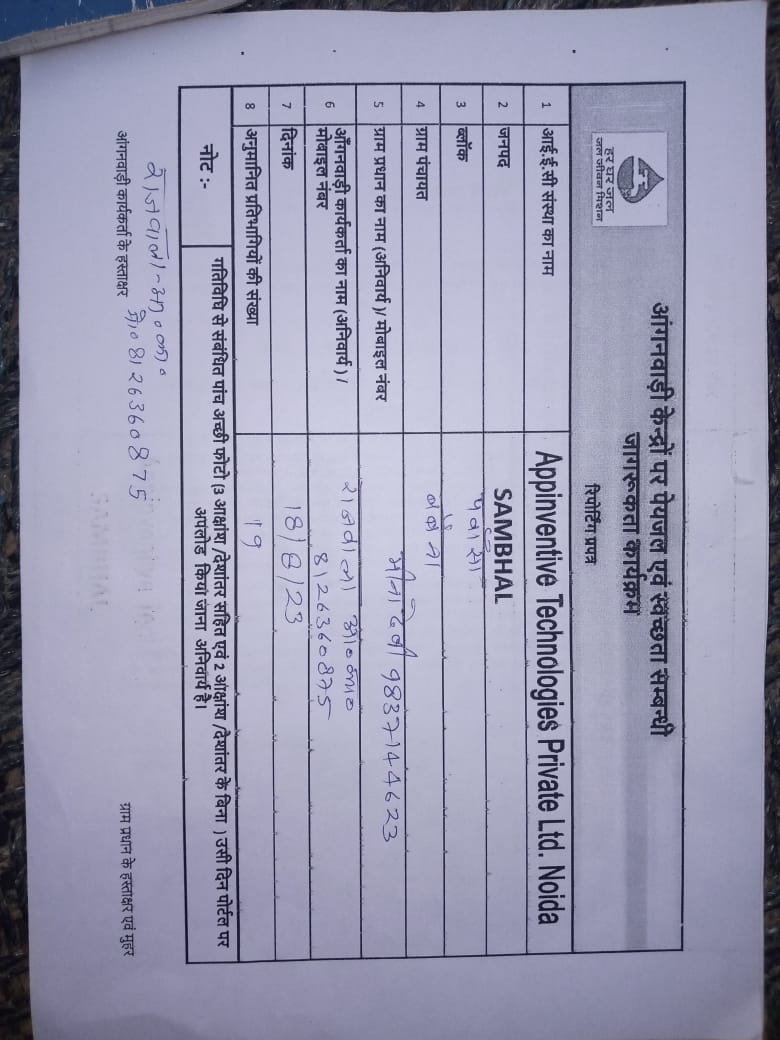 आंगनवाड़ी केन्द्रों पर पेयजल एवं स्वच्छता सम्बन्धी
जागरूकता कार्यक्रम
हर घर जल
जल जीवन मिशन
रिपोर्टिंग प्रपत्र
1 आई.ई.सी संस्था का नाम Appinventive Technologies Private Ltd. Noida
2 जनपद SAMBHAL
3 ब्लॉक पवांसा
4 ग्राम पंचायत
5 ग्राम प्रधान का नाम (अनिवार्य )/ मोबाइल नंबर 9837144623
6 आँगनवाड़ी कार्यकर्ता का नाम (अनिवार्य ) / राजवाला आ० का०
मोबाइल नंबर 8126360875
7 दिनांक 18/8/23
8 अनुमानित प्रतिभागियों की संख्या 19
नोट :- गतिविधि से संबंधित पांच अच्छी फोटो (3 आक्षांश /देशांतर सहित एवं 2 आक्षांश /देशांतर के बिना ) उसी दिन पोर्टल पर
अपलोड किया जाना अनिवार्य है।
राजवाला-आ० का०
आंगनवाड़ी कार्यकर्ता के हस्ताक्षर मो० 8126360875 ग्राम प्रधान के हस्ताक्षर एवं मुहर